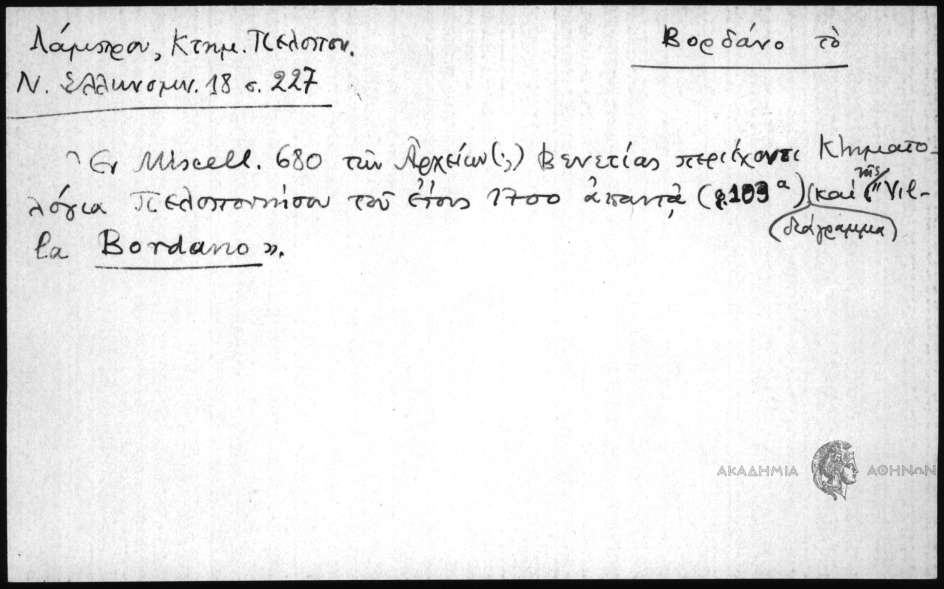 Λάμπρου, Κτημ. Πελοπον.
Ν. Ελληνομν. 18 σ. 227
Βορδάνο τὸ
Ἐν Miscell. 680 τῶν Ἀρχείων (;) Βενετίας περιέχοντι Κτηματο-
λόγια Πελοποννήσου τοῦ ἔτους 1700 ἀπαντᾷ (φ. 109α) (καὶ διάγραμμα) τῆς "Vil-
la Bordano».
ΑΚΑΔΗΜΙΑ ΑΘΗΝΩΝ